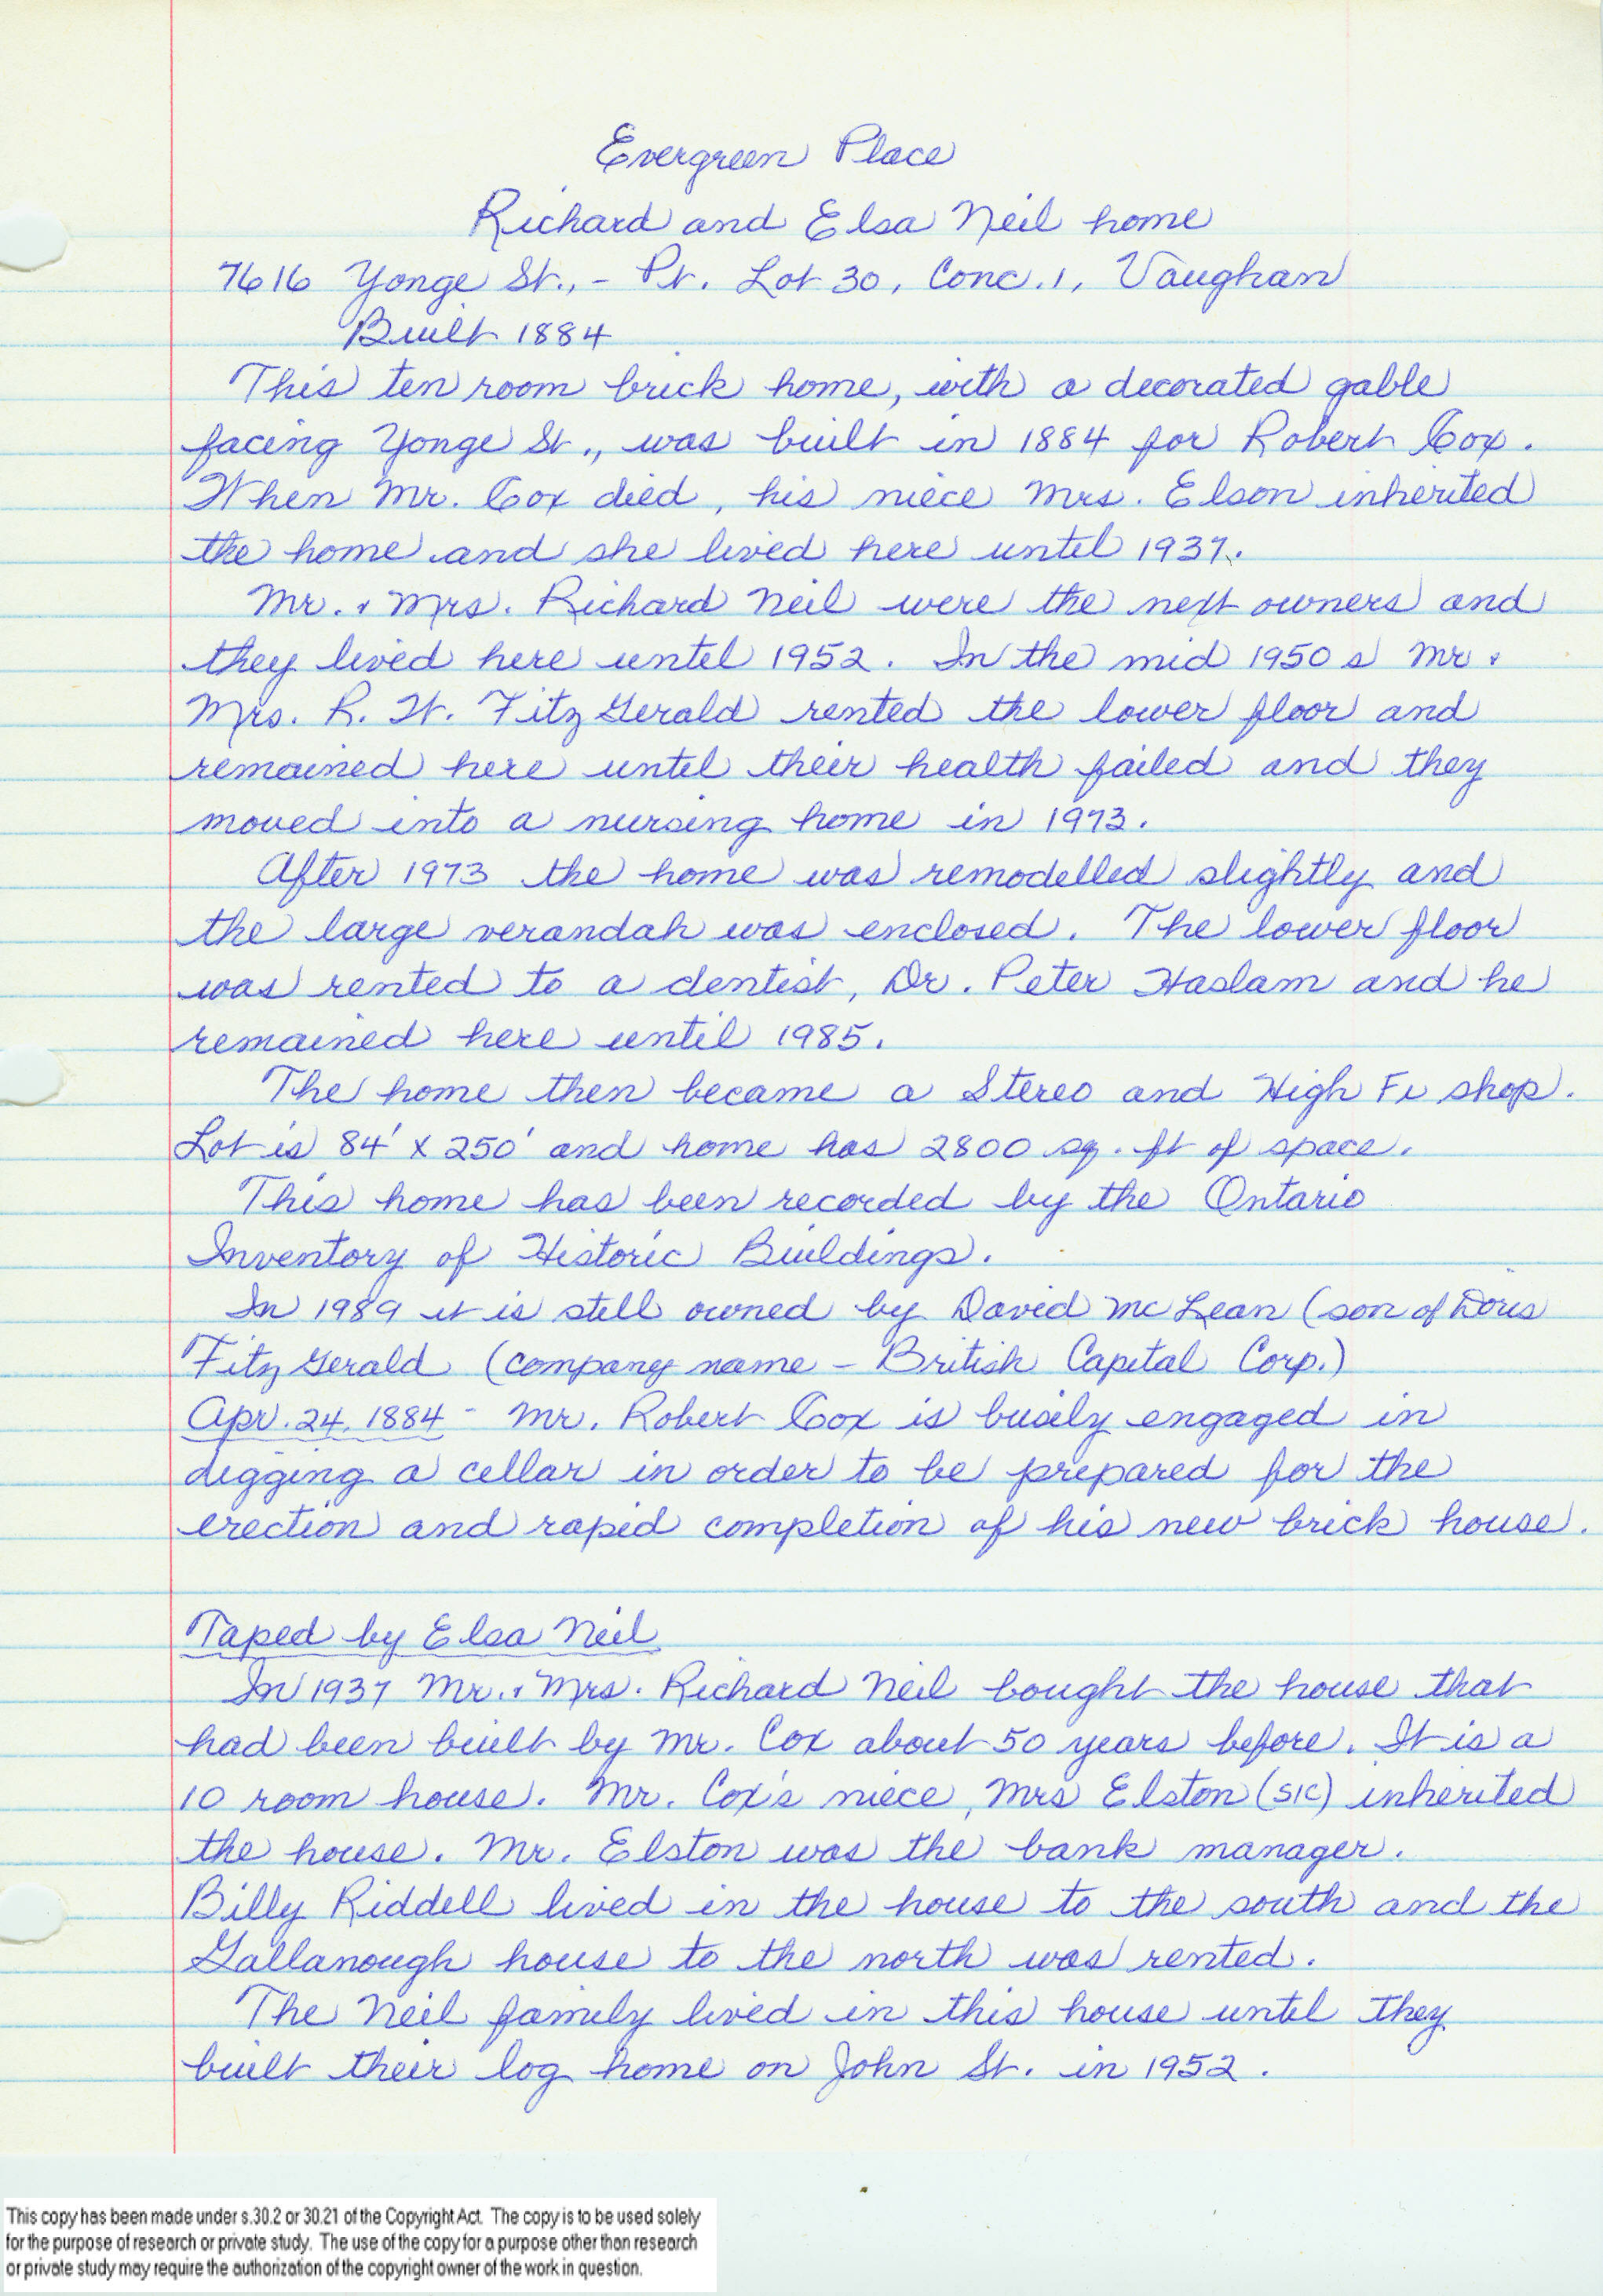 Evergreen Place
Richard and Elsa Neil home
7616 Yonge St., - Pt. Lot 30, Conc. 1, Vaughan
Built 1884
This ten room brick home, with a decorated gable
facing Yonge St., was built in 1884 for Robert Cox.
When Mr. Cox died, his niece Mrs. Elson inherited
the home and she lived here until 1937.
Mr. & Mrs. Richard Neil were the next owners and
they lived here until 1952. In the mid 1950s Mr &
Mrs. R. H. FitzGerald rented the lower floor and
remained here until their health failed and they
moved into a nursing home in 1973.
After 1973 the home was remodelled slightly and
the large verandah was enclosed. The lower floor
was rented to a dentist, Dr. Peter Haslam and he
remained here until 1985.
The home then became a Stereo and High Fi shop.
Lot is 84' x 250' and home has 2800 sq. ft of space.
This home has been recorded by the Ontario
Inventory of Historic Buildings.
In 1989 it is still owned by David McLean (son of Doris
FitzGerald (company name - British Capital Corp.)
Apr. 24, 1884 - Mr. Robert Cox is busily engaged in
digging a cellar in order to be prepared for the
erection and rapid completion of his new brick house.
Taped by Elsa Neil
In 1937 Mr. & Mrs. Richard Neil bought the house that
had been built by Mr. Cox about 50 years before. It is a
10 room house. Mr. Cox's niece, Mrs Elston (sic) inherited
the house. Mr. Elston was the bank manager.
Billy Riddell lived in the house to the south and the
Gallanough house to the north was rented.
The Neil family lived in this house until they
built their log home on John St. in 1952.
This copy has been made under s.30.2 or 30.21 of the Copyright Act. The copy is to be used solely
for the purpose of research or private study. The use of the copy for a purpose other than research
or private study may require the authorization of the copyright owner of the work in question.